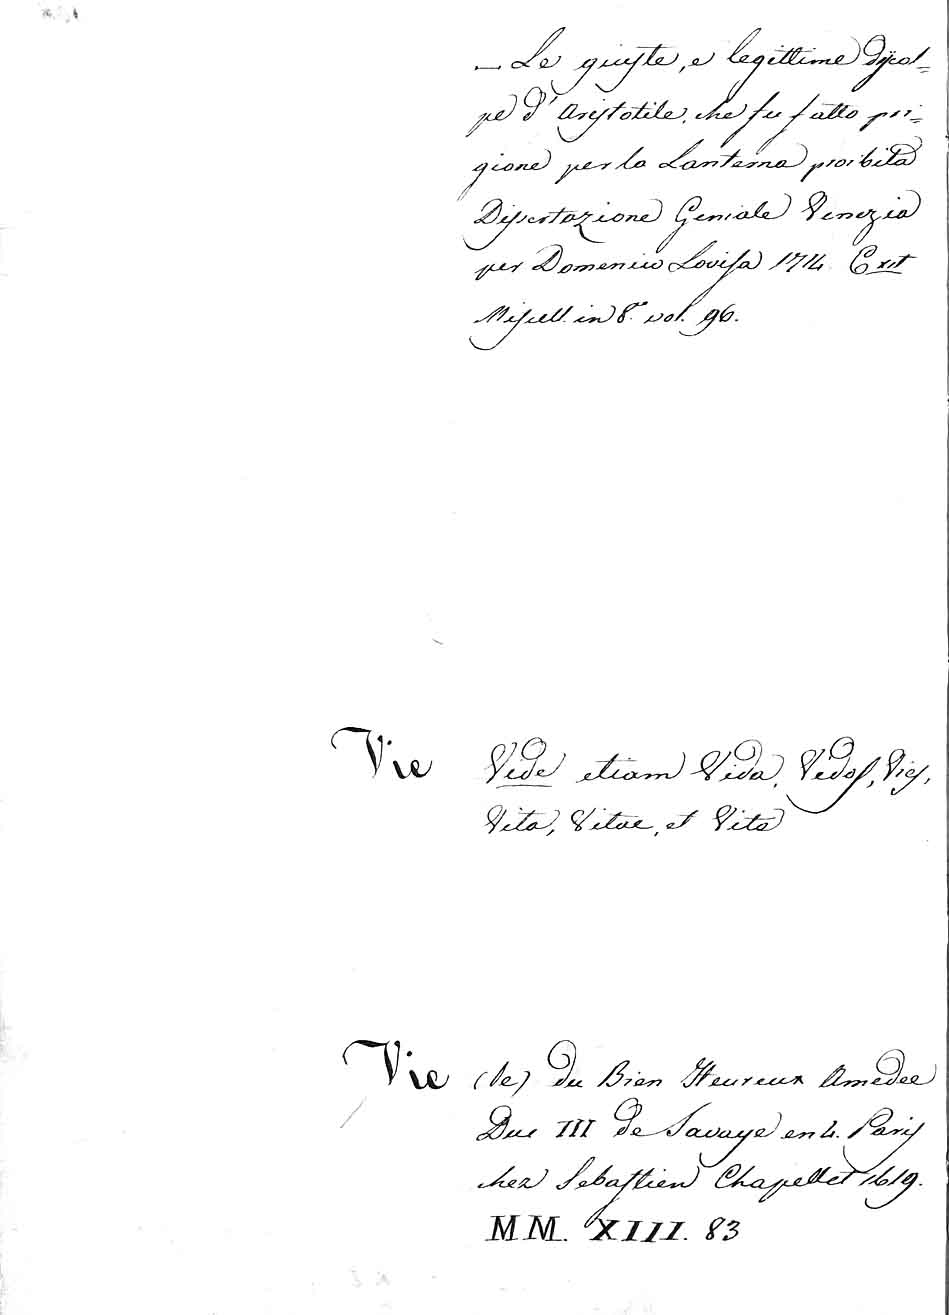 — Le giuste, e legittime discol=
pe d'Aristotile, che fu fatto pri=
gione per la Lanterna proibita
Dissertazione Geniale Venezia
per Domenico Lovisa 1714. Exit
Miscell. in 8.º vol. 96.
Vie Vide etiam Vida, Vidas, Vies,
Vita, Vitae, et Vite
Vie (le) du Bien Heureux Amedee
Duc III de Savaye en 4. Paris
chez Sebastien Chapellet 1619.
MM. XIII. 83